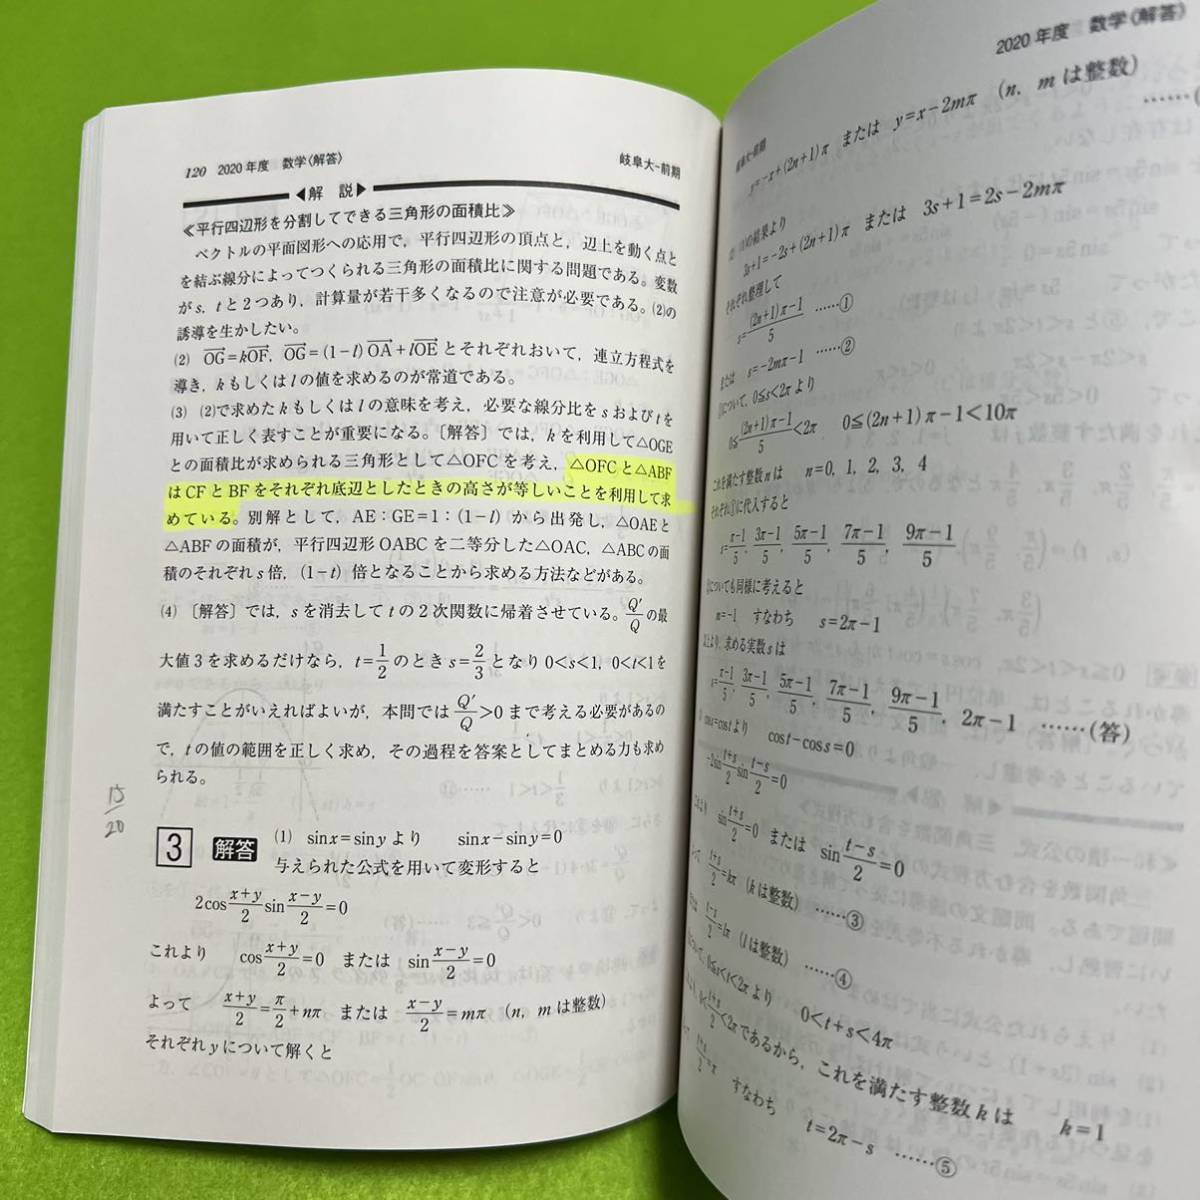 120 2020年度 数学〈解答〉 岐阜大-前期
◀解 説▶
≪平行四辺形を分割してできる三角形の面積比≫
ベクトルの平面図形への応用で，平行四辺形の頂点と，辺上を動く点と
を結ぶ線分によってつくられる三角形の面積比に関する問題である。変数
がs，tと2つあり，計算量が若干多くなるので注意が必要である。(2)の
誘導を生かしたい。
(2) OG=kOF，OG=(1-l)OA+lOEとそれぞれおいて，連立方程式を
導き，kもしくはlの値を求めるのが常道である。
(3) (2)で求めたkもしくはlの意味を考え，必要な線分比をsおよびtを
用いて正しく表すことが重要になる。〔解答〕では，kを利用して△OGE
との面積比が求められる三角形として△OFCを考え，△OFCと△ABF
はCFとBFをそれぞれ底辺としたときの高さが等しいことを利用して求
めている。別解として，AE：GE=1：(1-l)から出発し，△OAEと
△ABFの面積が，平行四辺形OABCを二等分した△OAC，△ABCの面
積のそれぞれs倍，(1-t)倍となることから求める方法などがある。
(4) 〔解答〕では，sを消去してtの2次関数に帰着させている。Q'/Qの最
大値3を求めるだけなら，t=1/2のときs=2/3となり0<s<1，0<t<1を
満たすことがいえればよいが，本問ではQ'/Q>0まで考える必要があるの
で，tの値の範囲を正しく求め，その過程を答案としてまとめる力も求め
られる。
15/20
3 解答 (1) sinx=sinyより sinx-siny=0
与えられた公式を用いて変形すると
2cos(x+y)/2 sin(x-y)/2=0
これより cos(x+y)/2=0 または sin(x-y)/2=0
よって (x+y)/2=π/2+nπ または (x-y)/2=mπ (n，mは整数)
それぞれyについて解くと
2020年度 数学〈解答〉
岐阜大-前期
y=-x+(2n+1)π または y=x-2mπ (n，mは整数)
の結果より
3s+1=-2s+(2n+1)π または 3s+1=2s-2mπ
それぞれ整理して
s=((2n+1)π-1)/5 ……①
または s=-2mπ-1 ……②
について，0≦s<2πより
0≦((2n+1)π-1)/5<2π 0≦(2n+1)π-1<10π
これを満たす整数nは n=0，1，2，3，4
それぞれ①に代入すると
s=(π-1)/5，(3π-1)/5，(5π-1)/5，(7π-1)/5，(9π-1)/5
についても同様に考えると
m=-1 すなわち s=2π-1
以上より，求める実数sは
s=(π-1)/5，(3π-1)/5，(5π-1)/5，(7π-1)/5，(9π-1)/5，2π-1 ……(答)
cost-coss=0
-2sin(t+s)/2 sin(t-s)/2=0
sin(t+s)/2=0 または sin(t-s)/2=0
(t+s)/2=kπ (kは整数) ……③
(t-s)/2=lπ (lは整数) ……④
0≦s<t<2πより 0<t+s<4π
0<(t+s)/2<2πであるから，これを満たす整数kは k=1
すなわち t=2π-s ……⑤